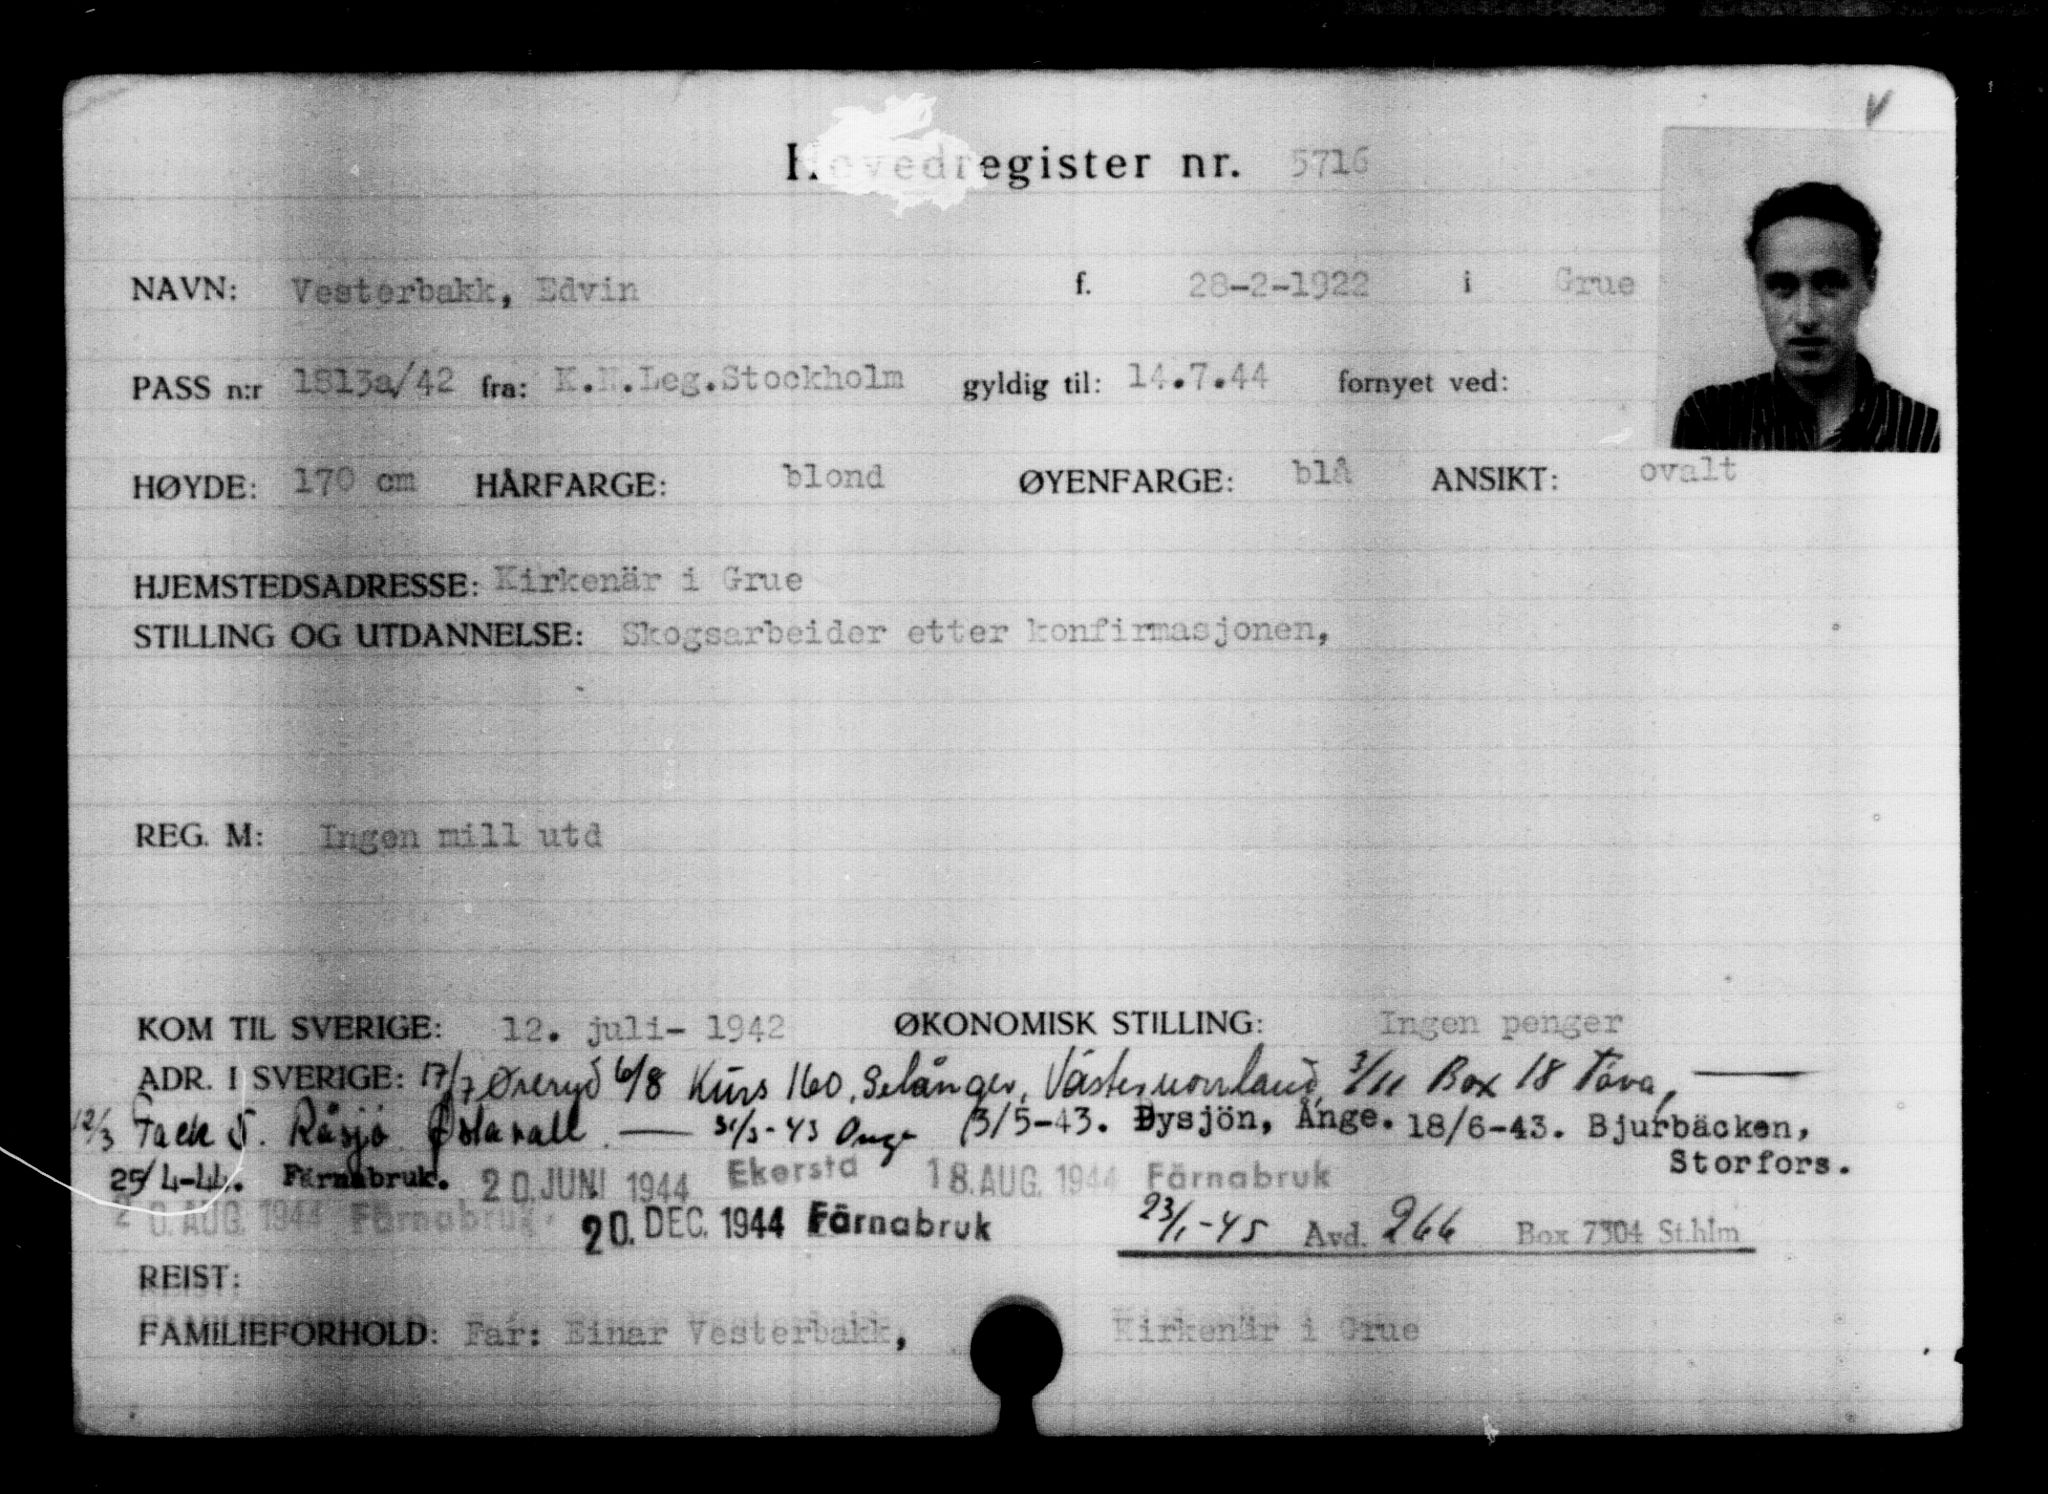 V
Hovedregister nr. 5716
NAVN: Vesterbakk, Edvin f. 28-2-1922 i Grue
PASS n:r 1813a/42 fra: K.N.Leg.Stockholm gyldig til: 14.7.44 fornyet ved:
HØYDE: 170 cm HÅRFARGE: blond ØYENFARGE: blå ANSIKT: ovalt
HJEMSTEDSADRESSE: Kirkenär i Grue
STILLING OG UTDANNELSE: Skogsarbeider etter konfirmasjonen,
REG. M: Ingen mill utd
KOM TIL SVERIGE: 12. juli- 1942 ØKONOMISK STILLING: Ingen penger
ADR. I SVERIGE: 17/7 Øreryd 6/8 Kurs 160, Selånger, Västernorrland, 3/11 Box 18 Töva, —
12/3 Fack 5. Råsjö Östavall — 31/3-43 Ånge 13/5-43. Dysjön, Ånge. 18/6-43. Bjurbäcken,
Storfors.
25/4-44. Färnabruk. 20. JUNI 1944 Ekersta 18. AUG. 1944 Färnabruk
20. AUG. 1944 Färnabruk 20. DEC. 1944 Färnabruk 23/1-45 Avd. 266 Box 7304 St.hlm
REIST:
FAMILIEFORHOLD: Far: Einar Vesterbakk, Kirkenär i Grue